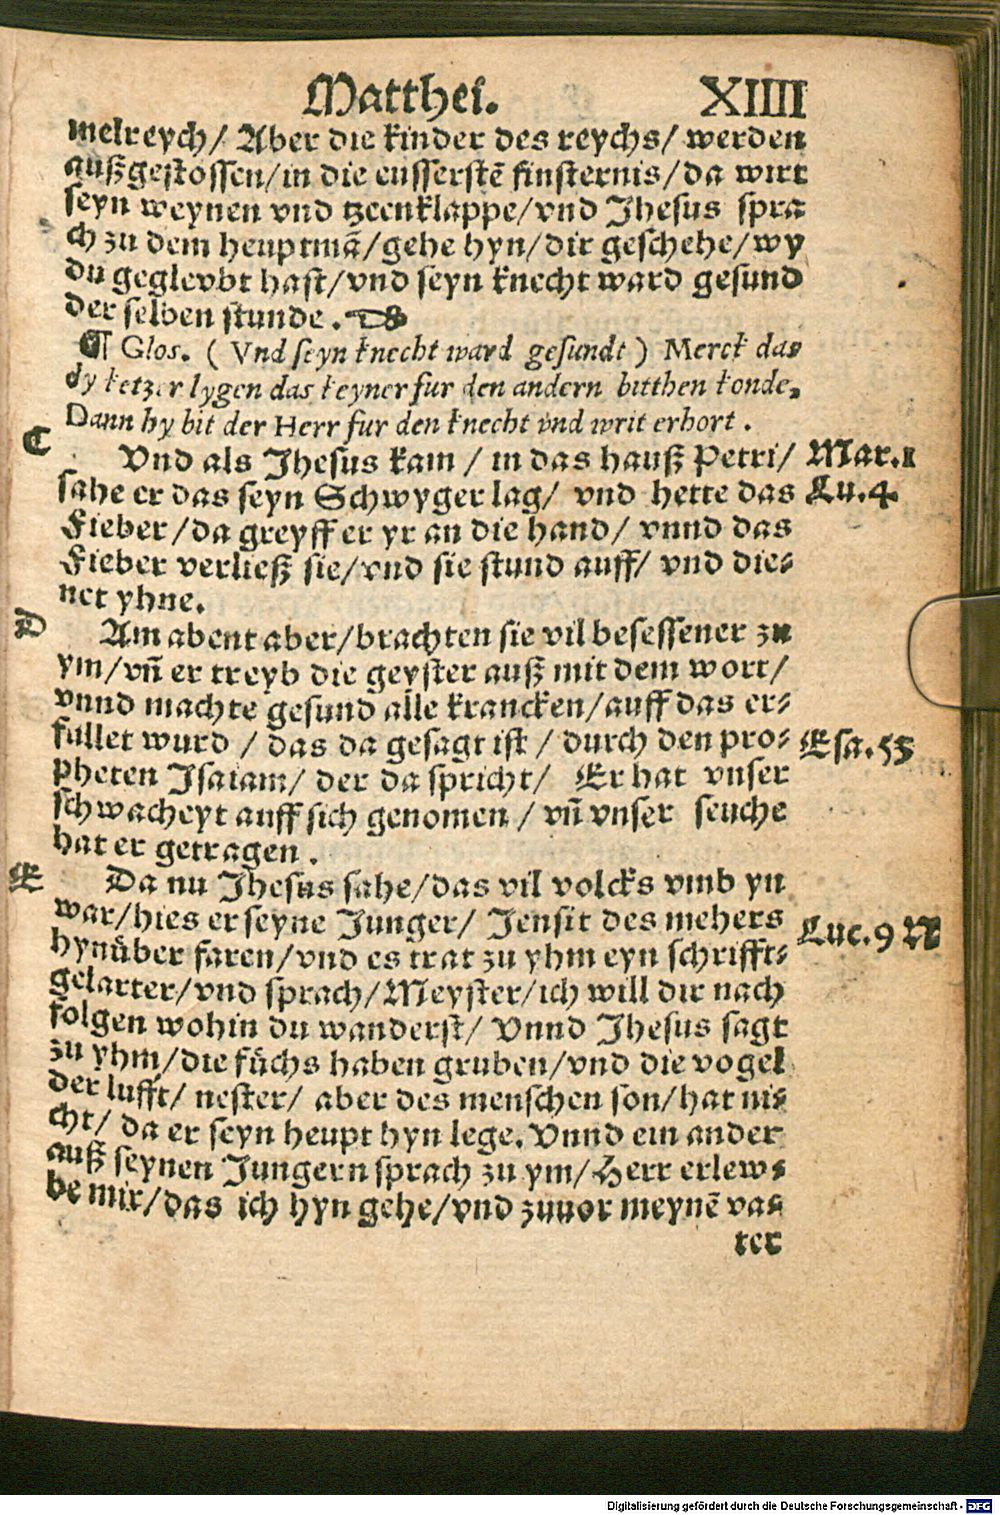 Matthei. XIIII
melreych/ Aber die kinder des reychs/ werden
außgestossen/in die eusserstē finsternis/da wirt
seyn weynen vnd tzeenklappe/vnd Jhesus spra
ch zu dem heuptmā/gehe hyn/dir geschehe/wy
du geglevbt hast/vnd seyn knecht ward gesund
der selben stunde.
¶ Glos. ( Vnd seyn knecht ward gesundt ) Merck das
dy ketzer lygen das keyner fur den andern bitthen konde,
Dann hy bit der Herr fur den knecht vnd writ erhort .
C
Vnd als Jhesus kam / in das hauß Petri/ Mar.1
sahe er das seyn Schwyger lag/ vnd hette das Lu.4
Fieber/da greyff er yr an die hand/ vnnd das
Fieber verließ sie/vnd sie stund auff/ vnd die-
net yhne.
D
Am abent aber/brachten sie vil besessener zu
ym/vñ er treyb die geyster auß mit dem wort/
vnnd machte gesund alle krancken/auff das er-
fullet wurd / das da gesagt ist / durch den pro- Esa.53
pheten Isaiam/ der da spricht/ Er hat vnser
schwacheyt auff sich genomen / vñ vnser seuche
hat er getragen .
E
Da nu Jhesus sahe/das vil volcks vmb yn
war/hies er seyne Junger/ Jensit des mehers
hynůber faren/vnd es trat zu yhm eyn schrifft- Luc.9
gelarter/vnd sprach/Meyster/ich will dir nach
folgen wohin du wanderst/ Vnnd Jhesus sagt
zu yhm/die fůchs haben gruben/vnd die vogel
der lufft/ nester/ aber des menschen son/hat ni-
cht/ da er seyn heupt hyn lege. Vnnd ein ander
auß seynen Jungern sprach zu ym/Herr erlew-
be mir/das ich hyn gehe/vnd zuuor meynē va-
ter
Digitalisierung gefördert durch die Deutsche Forschungsgemeinschaft - DFG